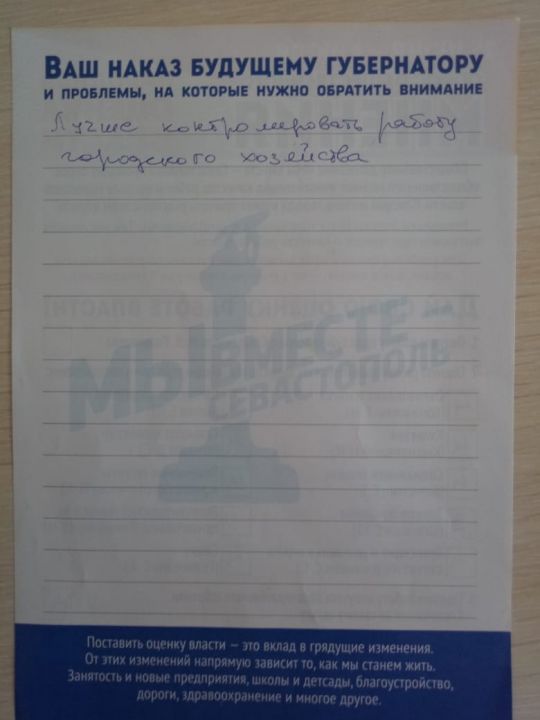 Ваш наказ будущему губернатору
и проблемы, на которые нужно обратить внимание
Лучше контролировать работу
городского хозяйства
МЫ ВМЕСТЕ
СЕВАСТОПОЛЬ
Поставить оценку власти — это вклад в грядущие изменения.
От этих изменений напрямую зависит то, как мы станем жить.
Занятость и новые предприятия, школы и детсады, благоустройство,
дороги, здравоохранение и многое другое.